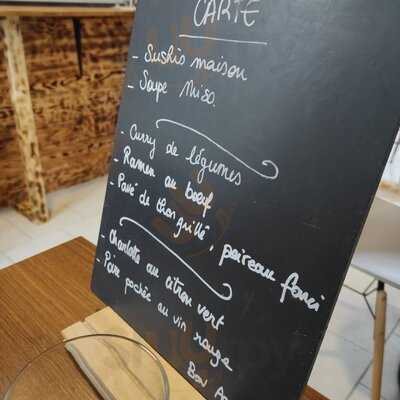 CARTE
- Sushis maison
- Soupe Miso.
- Curry de légumes
- Ramen au boeuf
- Pavé de thon grillé, poireau farci
- Charlotte au citron vert
- Poire pochée au vin rouge
Bon